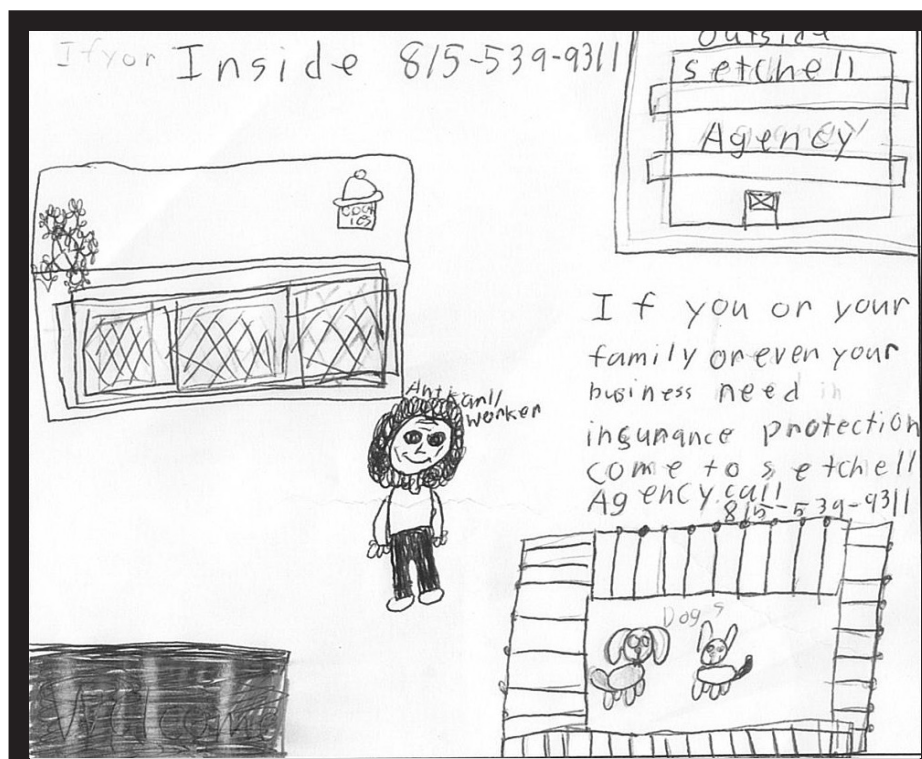 If yor Inside 815-539-9311
outside
setchell
Agency
COOK
IES
If you or your
family or even your
business need in
insurance protection
come to setchell
Agency. call
815-539-9311
worker
Dogs
Wellcome